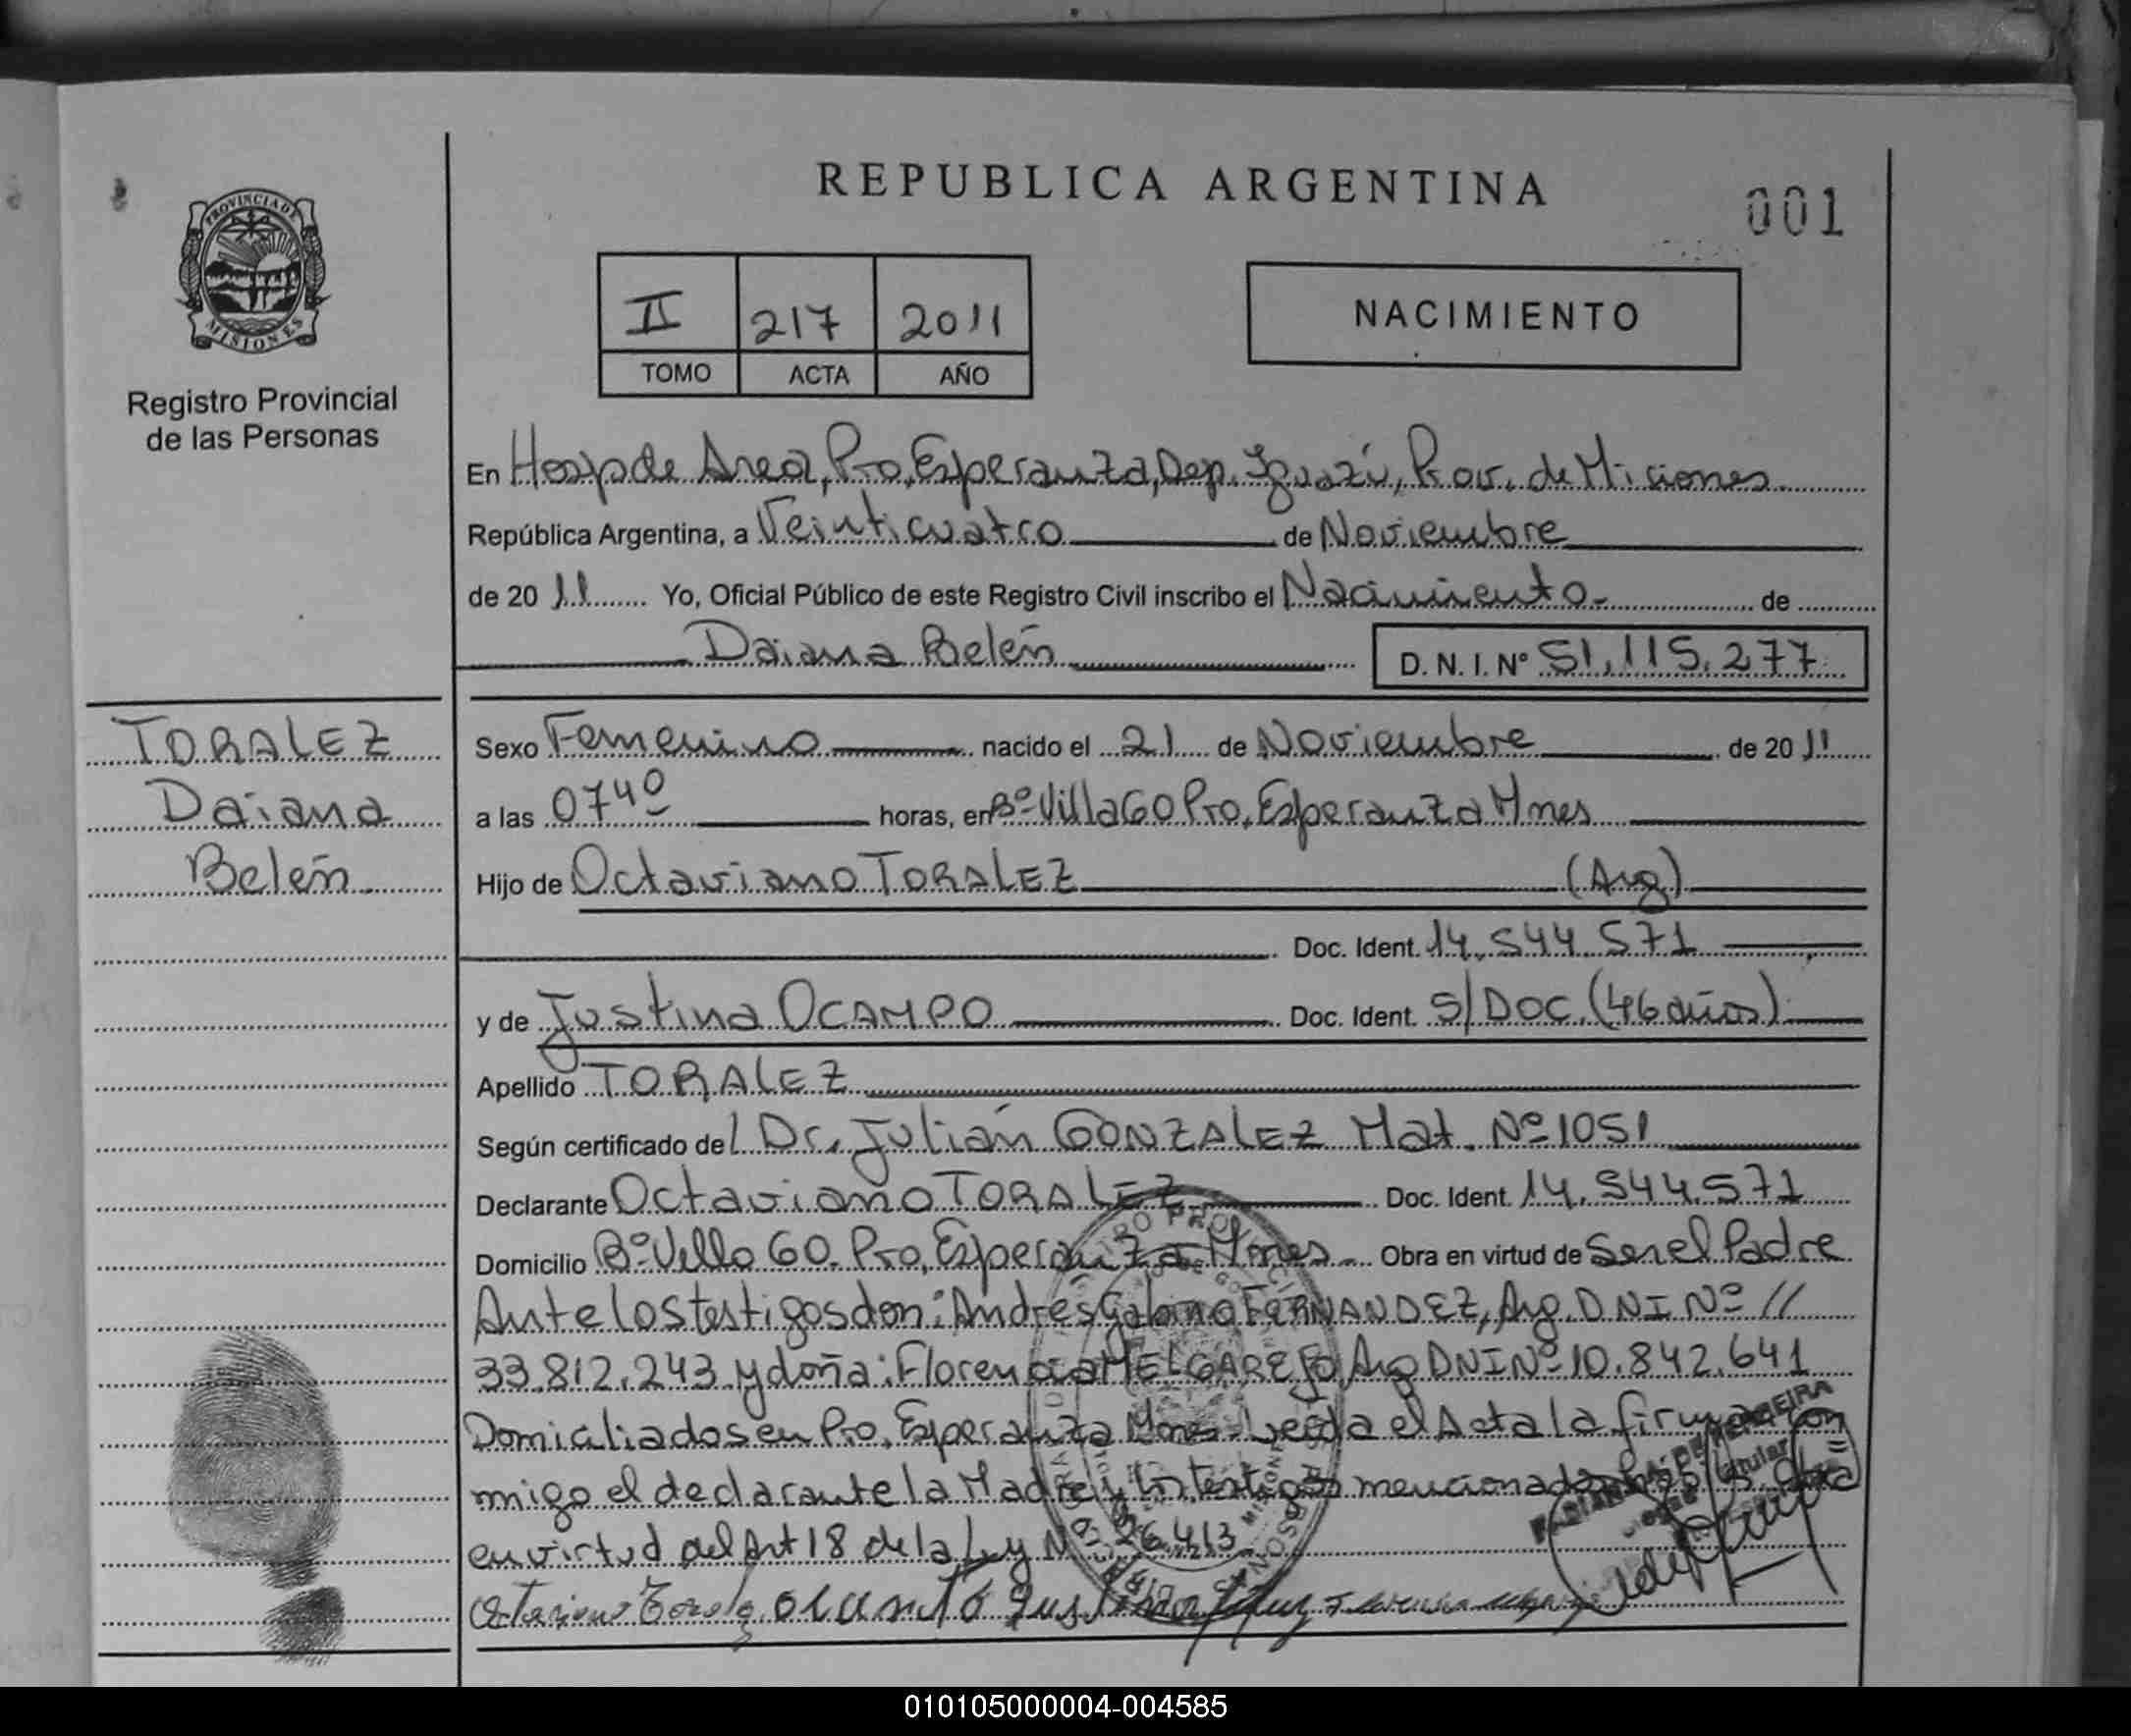 REPUBLICA ARGENTINA
001
PROVINCIA DE
MISIONES
Registro Provincial
de las Personas
II 217 2011
TOMO ACTA AÑO
NACIMIENTO
En Hosp de Area, Pto, Esperanza, Dep. Iguazú, Prov. de Miciones
República Argentina, a Veinticuatro de Noviembre
de 20 11 Yo, Oficial Público de este Registro Civil inscribo el Nacimiento- de
Daiana Belén D. N. I. Nº 51.115.277
TORALEZ
Daiana
Belén
Sexo Femenino nacido el 21 de Noviembre de 20 11
a las 0740 horas, en Bº Villa 60 Pto, Esperanza Mnes
Hijo de Octaviano TORALEZ (Arg)
Doc. Ident. 14.544.571
y de Justina OCAMPO Doc. Ident. S/DOC. (46 años)
Apellido TORALEZ
Según certificado del Dr. Julián GONZALEZ Mat. Nº 1051
Declarante Octaviano TORALEZ Doc. Ident. 14.544.571
Domicilio Bº Vella 60. Pto, Esperanza Mnes Obra en virtud de Ser el Padre
Ante los testigos don: Andres Gabino FERNANDEZ, Arg. DNI Nº //
33.812.243 y doña: Florencia MELGAREJO Arg DNI Nº 10.842.641
Domiciliados en Pto, Esperanza Mnes. Leída el Acta la firman con
migo el declarante la Madre y los testigos mencionados
en virtud del Art 18 de la Ley Nº 26.413
010105000004-004585